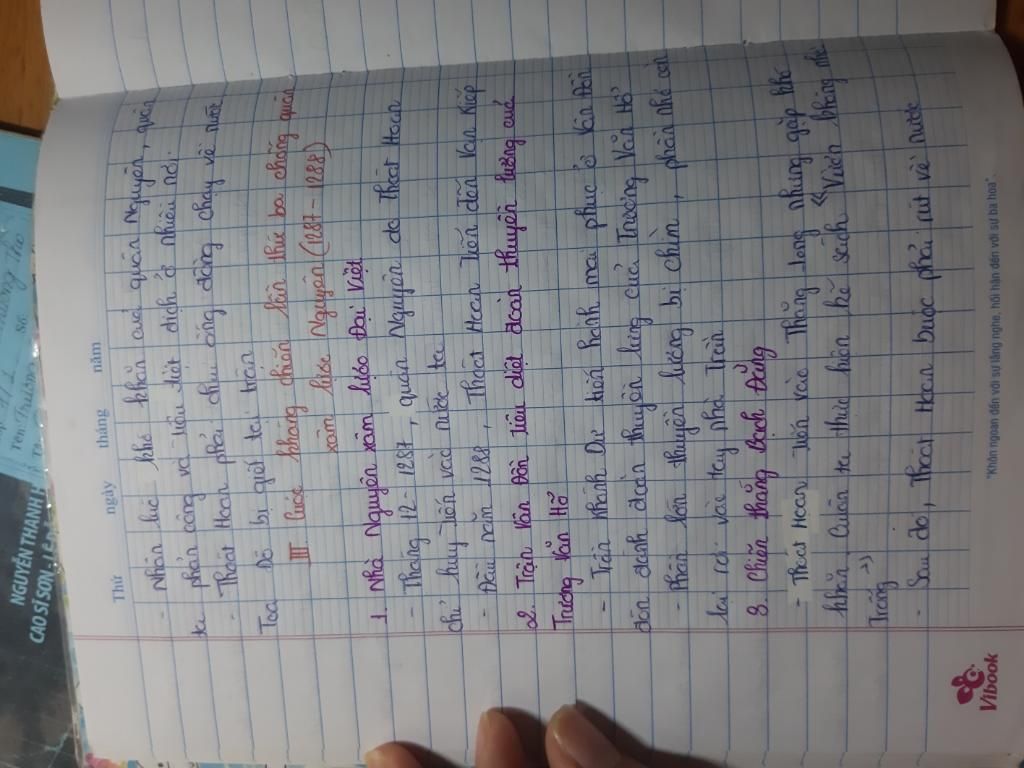 NGUYỄN THANH
CA SĨ SƠN
Thứ ngày tháng năm
- Nhân lúc khó khăn của quân Nguyên, quân
ta phản công và tiêu diệt địch ở nhiều nơi.
- Thoát Hoan phải chui ống đồng chạy về nước
Toa Đô bị giết tại trận
III Cuộc kháng chiến lần thứ ba chống quân
xâm lược Nguyên (1287 - 1288)
1. Nhà Nguyên xâm lược Đại Việt
- Tháng 12 - 1287, quân Nguyên do Thoát Hoan
chỉ huy tiến vào nước ta
- Đầu năm 1288, Thoát Hoan tiến đến Vạn Kiếp
2. Trận Vân Đồn tiêu diệt đoàn thuyền lương của
Trương Văn Hổ
- Trần Khánh Dư tiến hành mai phục ở Vân Đồn
đón đánh đoàn thuyền lương của Trương Văn Hổ
- Phần lớn thuyền lương bị chìm, phần nhỏ còn
lại rơi vào tay nhà Trần
3. Chiến thắng Bạch Đằng
- Thoát Hoan tiến vào Thăng Long nhưng gặp khó
khăn. Quân ta thực hiện kế sách "Vườn không nhà
Trống"
- Sau đó, Thoát Hoan buộc phải rút về nước
"Khôn ngoan đến với sự lắng nghe, hối hận đến với sự ba hoa".
Vibook